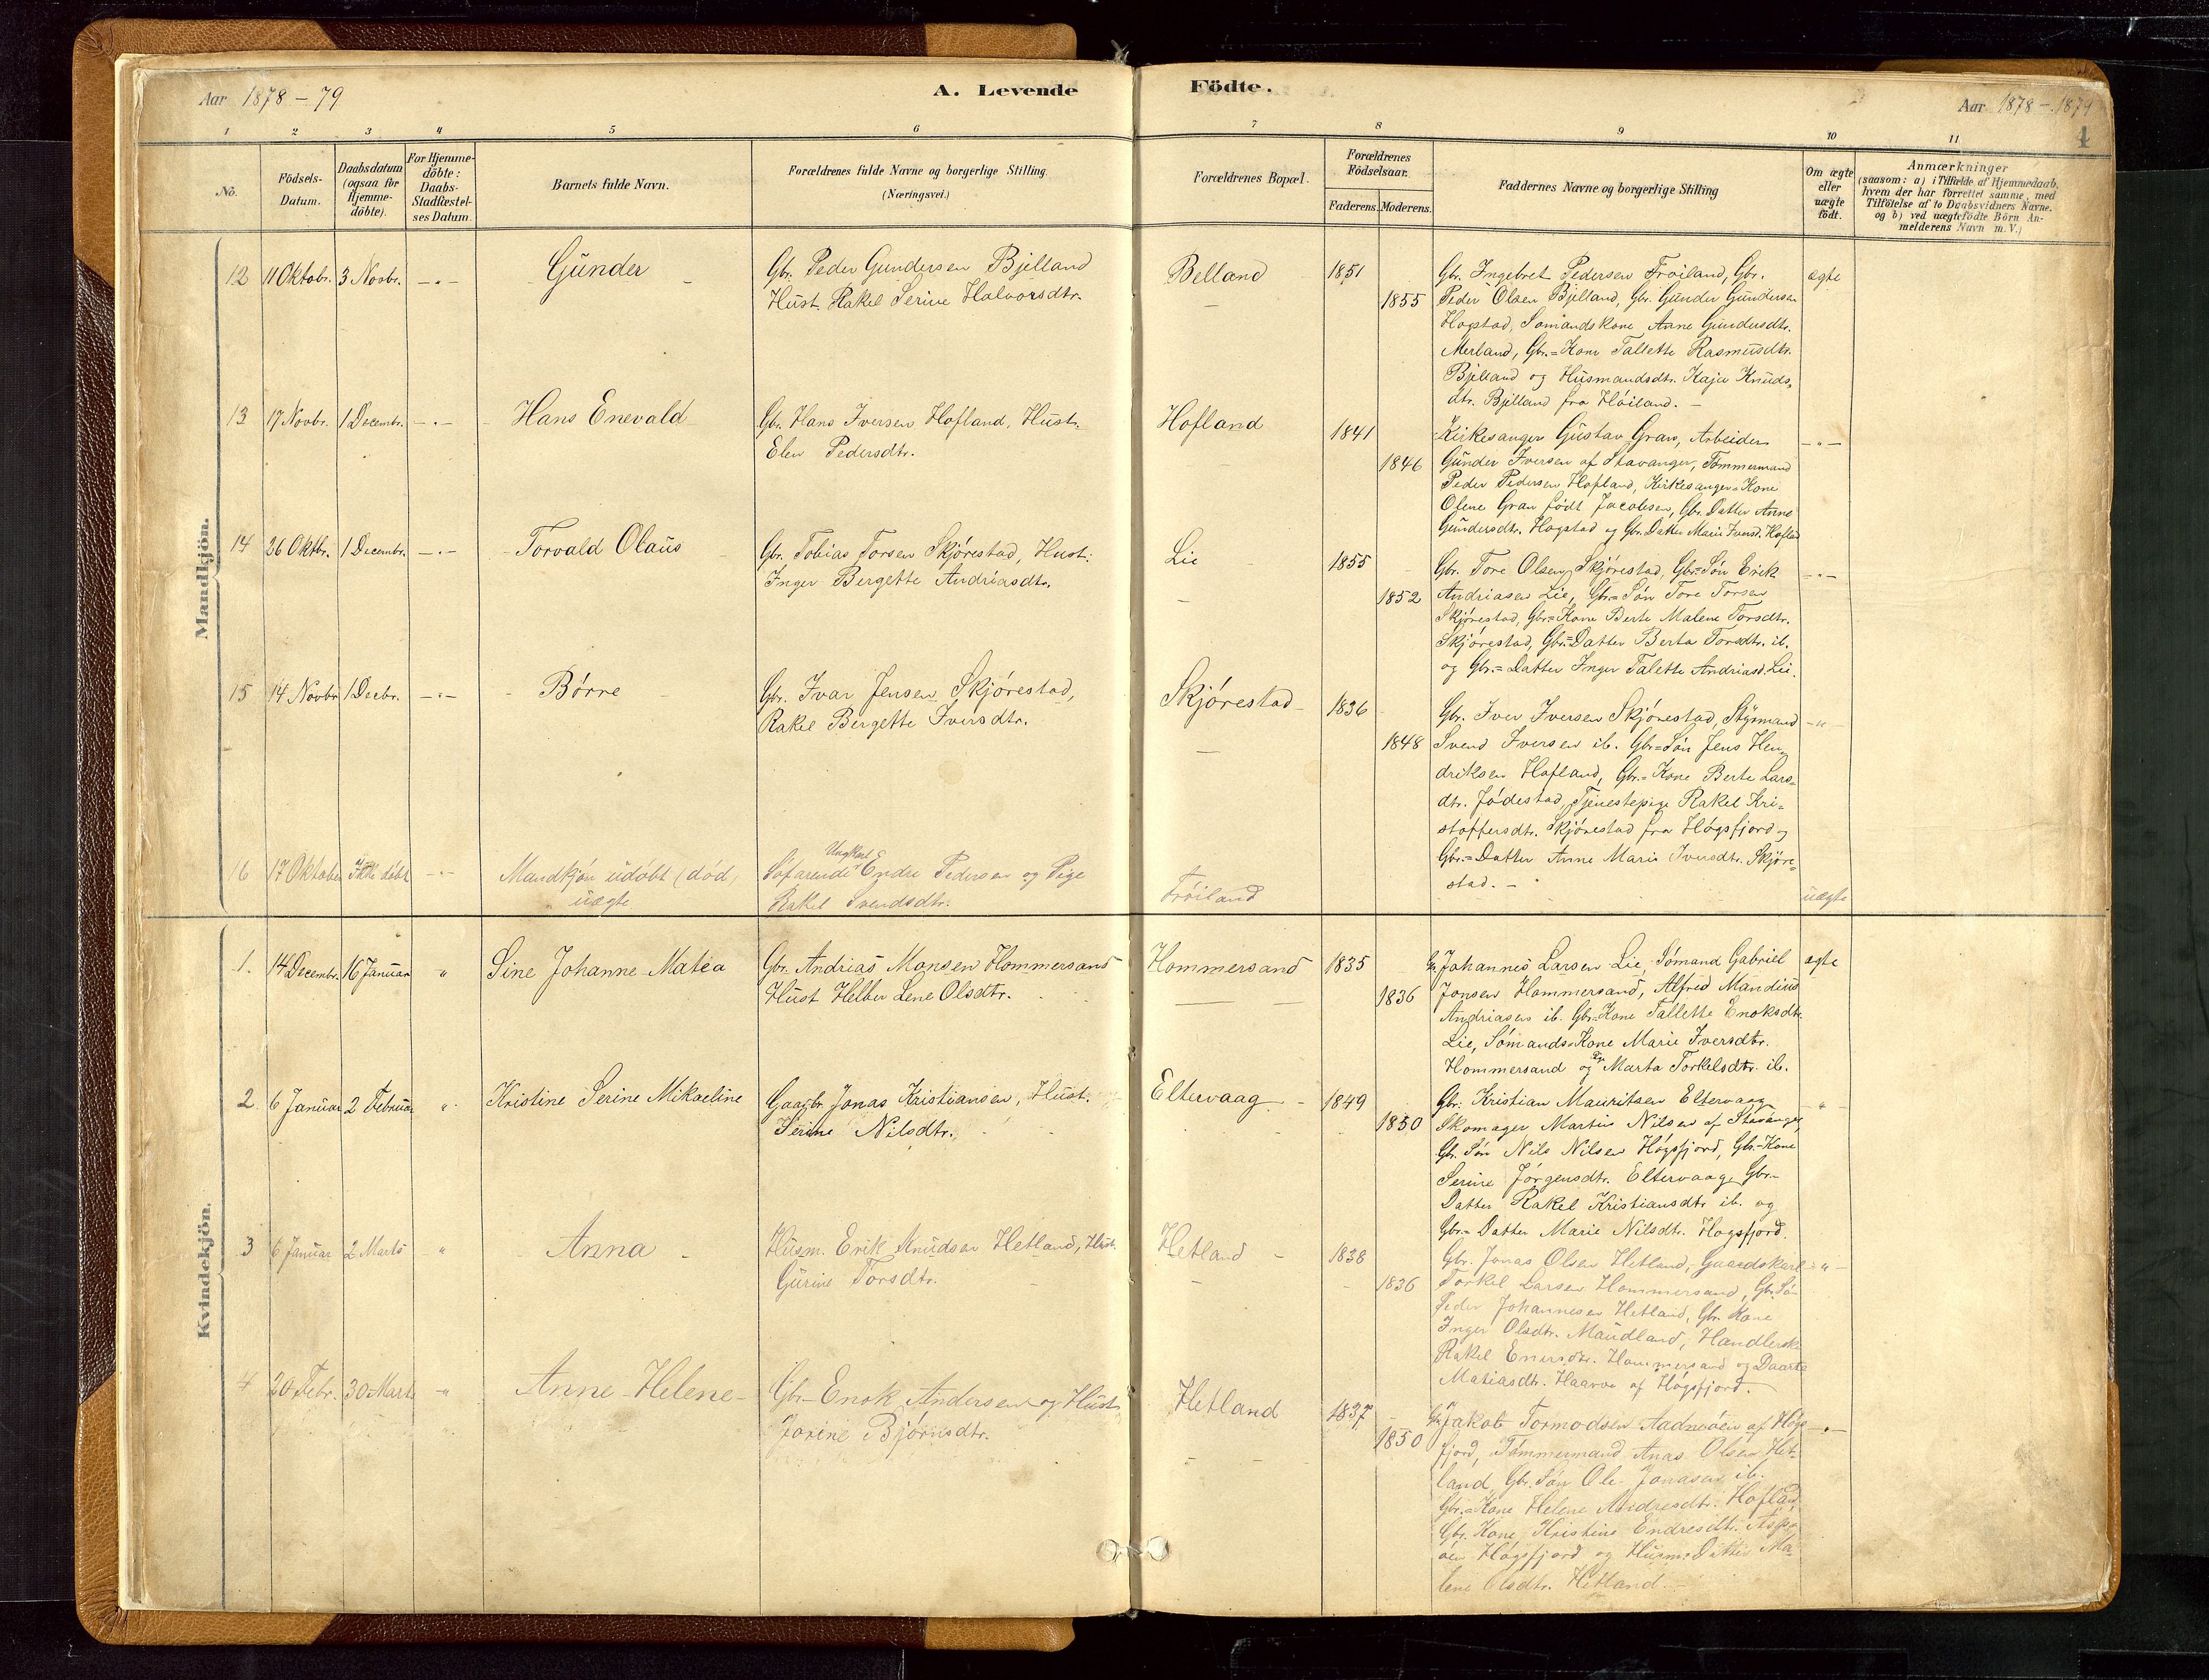 Aar 1878 – 79
A. Levende
Födte.
Aar 1878 – 1879
4
1 2 3 4 5 6 7 8 9 10 11
No.
Födsels-
Datum.
Daabsdatum
(ogsaa for
Hjemme-
döbte).
For Hjemme-
döbte:
Daabs-
Stadfæstel-
ses Datum.
Barnets fulde Navn.
Forældrenes fulde Navne og borgerlige Stilling.
(Næringsvei.)
Forældrenes Bopæl.
Forældrenes
Födselsaar.
Faderens. Moderens.
Faddernes Navne og borgerlige Stilling
Om ægte
eller
uægte
födt.
Anmærkninger
(saasom: a) i Tilfælde af Hjemmedaab,
hvem der har forrettet samme, med
Tilföielse af to Daabsvidners Navne,
og b) ved uægtefödte Börn An-
melderens Navn m.V.)
Mandkjön.
12 11 Oktobr. 3 Novbr. –"– Gunder
Gbr. Peder Gundersen Bjelland
Hust. Rakel Serine Halvorsdtr.
Belland 1851
1855
Gbr. Ingebret Pedersen Fröiland, Gbr.
Peder Olsen Bjelland, Gbr. Gunder Gundersen
Hogstad, Sömandskone Anne Gundersdtr.
Merland, Gbr.=Kone Tallette Rasmusdtr.
Bjelland og Husmandsdtr. Kaja Knuds,
dtr. Bjelland fra Höiland. –
ægte
13 17 Novbr. 1 Decembr. –"– Hans Enevald
Gbr. Hans Iversen Hofland, Hust.
Elen Pedersdtr.
Hofland 1841
1846
Kirkesanger Gustav Gran, Arbeider
Gunder Iversen af Stavanger, Tömmermand
Peder Pedersen Hofland, Kirkesanger=Kone
Olene Gran födt Jacobsen, Gbr. Datter Anne
Gundersdtr. Hogstad og Gbr. Datter Marie Iversd. Hofland
–"–
14 26 Oktbr. 1 Decembr. –"– Torvald Olaus
Gbr. Tobias Torsen Skjörestad, Hust.
Inger Bergette Andriasdtr.
Lie 1855
1852
Gbr. Tore Olsen Skjörestad, Gbr=Sön Erik
Andriasen Lie, Gbr=Sön Tore Torsen
Skjörestad, Gbr=Kone Berte Malene Torsdtr.
Skjörestad, Gbr=Datter Berta Torsdtr. ib.
og Gbr.=Datter Inger Talette Andriasd. Lie.
–"–
15 14 Novbr. 1 Decbr. –"– Börre
Gbr. Ivar Jensen Skjörestad,
Rakel Bergette Iversdtr.
Skjörestad 1836
1848
Gbr. Iver Iversen Skjörestad, Styrmand
Svend Iversen ib. Gbr=Sön Jens Hen
driksen Hofland, Gbr.=Kone Berte Lars=
dtr. Jödestad, Tjenestepige Rakel Kri=
stoffersdtr. Skjörestad fra Högsfjord og
Gbr.=Datter Anne Marie Iversdtr. Skjöre=
stad. –
–"–
16 17 Oktober Ikke döbt –"– Mandkjön udöbt (död)
" uægte
Ungkarl
Söfarende Endre Pedersen og Pige
Rakel Svendsdtr.
Fröiland
uægte
Kvindekjön.
1. 14 Decembr. 16 Januar " Sine Johanne Matea
Gbr. Andrias Monsen Hommersand
Hust Helber Lene Olsdtr.
Hommersand 1835
1836
Gbr. Johannes Larsen Lie, Sömand Gabriel
Jonsen Hommersand, Alfred Mandius
Andriasen ib. Gbr=Kone Tallette Enoksdtr.
Lie, Sömands=Kone Marie Iversdtr.
Hommersand og Pg. Marta Torkelsdtr. ib.
ægte
2. 6 Januar 2 Februar " Kristine Serine Mikaeline
Gaarbr. Jonas Kristiansen, Hust.
Serine Nilsdtr.
Eltervaag 1849
1850
Gbr. Kristian Mauritsen Eltervaag
Skomager Martin Nilsen af Stavanger,
Gbr. Sön Nils Nilsen Högsfjord, Gbr.=Kone
Serine Jörgensdtr. Eltervaag, Gbr=
Datter Rakel Kristiansdtr ib. og
Gbr.= Datter Marie Nilsdtr. Hogsfjord.
"
3 6 Januar 2 Marts " Anna
Husm. Erik Knudsen Hetland, Hust.
Gurine Torsdtr.
Hetland 1838
1836
Gbr. Jonas Olsen Hetland, Gaardskarl
Torkel Larsen Hommersand, Gbr. Sön
Peder Johannesen Hetland, Gbr. Kone
Inger Olsdtr. Maudland, Handlersk.
Rakel Enersdtr. Hommersand og Daarte
Matiasdtr. Haarve af Högsfjord.
–"–
4 20 Febr. 30 Marts " Anne Helene
Gbr. Enok Andersen og Hust
Jorine Björnsdtr.
Hetland 1837
1850
Gbr. Jakob Tormodsen Aadnöen af Högs
fjord, Tömmermand Anas Olsen Het-
land, Gbr. Sön Ole Jonasen ib.
Gbr.=Kone Helene Andresdtr. Hofland,
Gbr. Kone Kristine Endresdtr. Aspe
öen Högsfjord og Husm: Datter Ma-
lene Olsdtr. Hetland. –
–"–